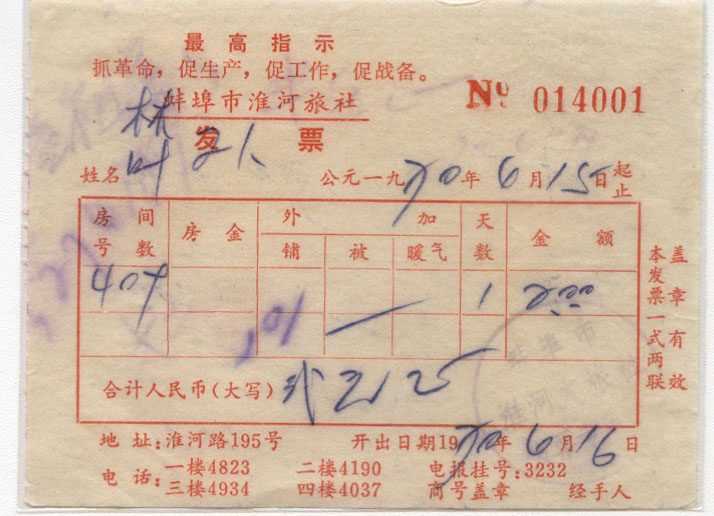 最高指示
抓革命，促生产，促工作，促战备。
蚌埠市淮河旅社
No 014001
发票
姓名 林叶 2人 公元一九70年6月15日起止
房间号数 房金 外加 铺 被 暖气 天数 金额
407 1 2.00
合计人民币（大写）
地址：淮河路195号 开出日期1970年6月16日
电话：一楼4823 二楼4190 电报挂号：3232
三楼4934 四楼4037 商号盖章 经手人
本发票一式两联
盖章有效